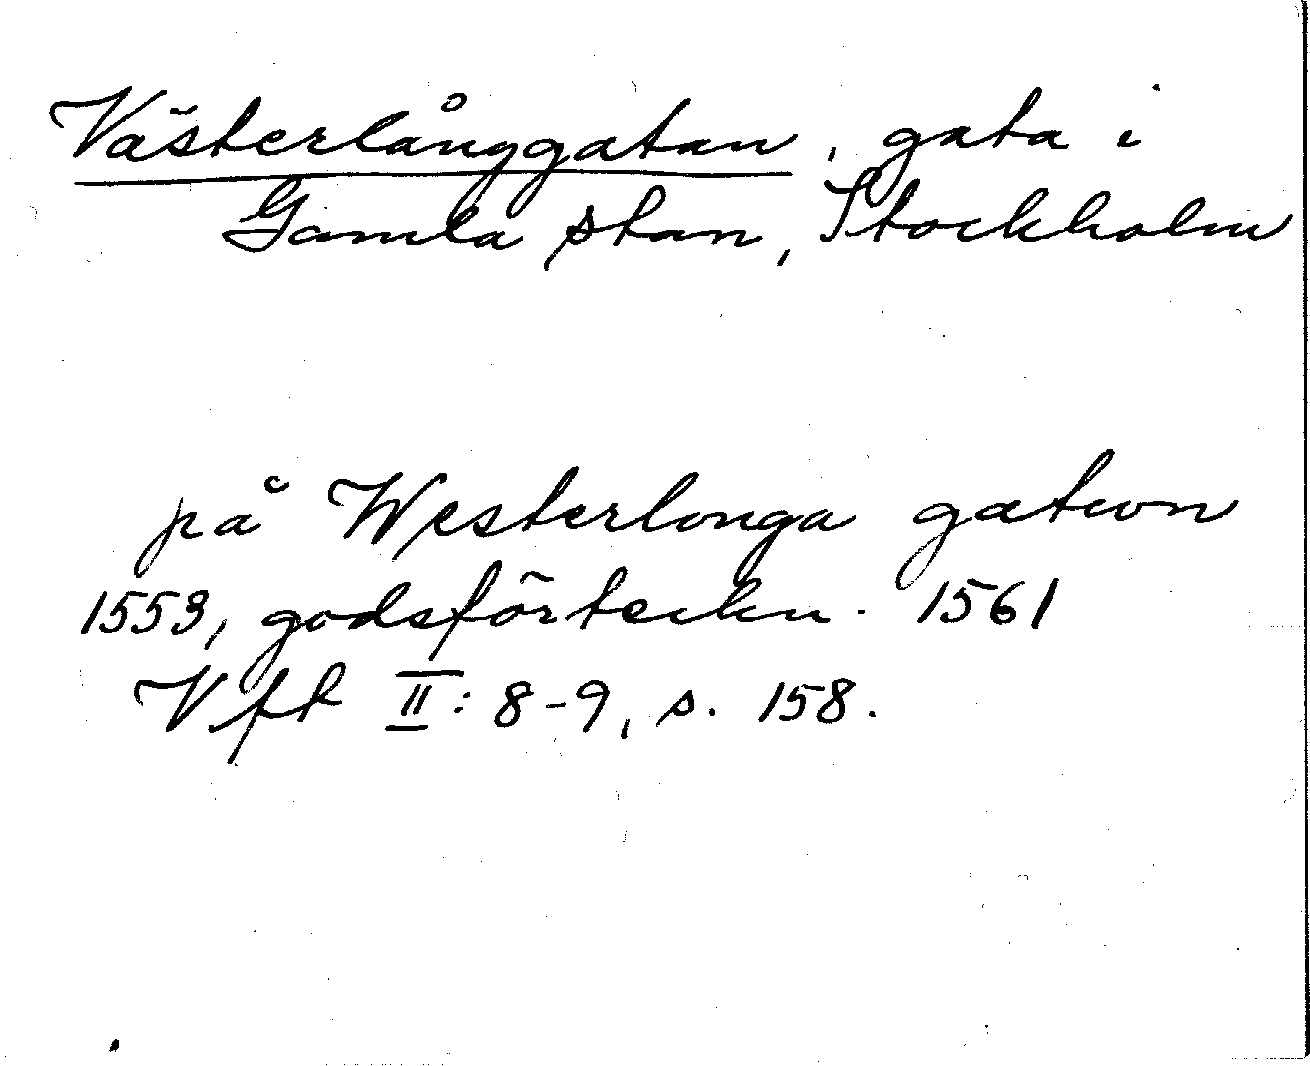 Västerlånggatan, gata i
Gamla stan, Stockholm
på Westerlonga gatwon
1553, godsförteckn. 1561
Vft II: 8-9, s. 158.